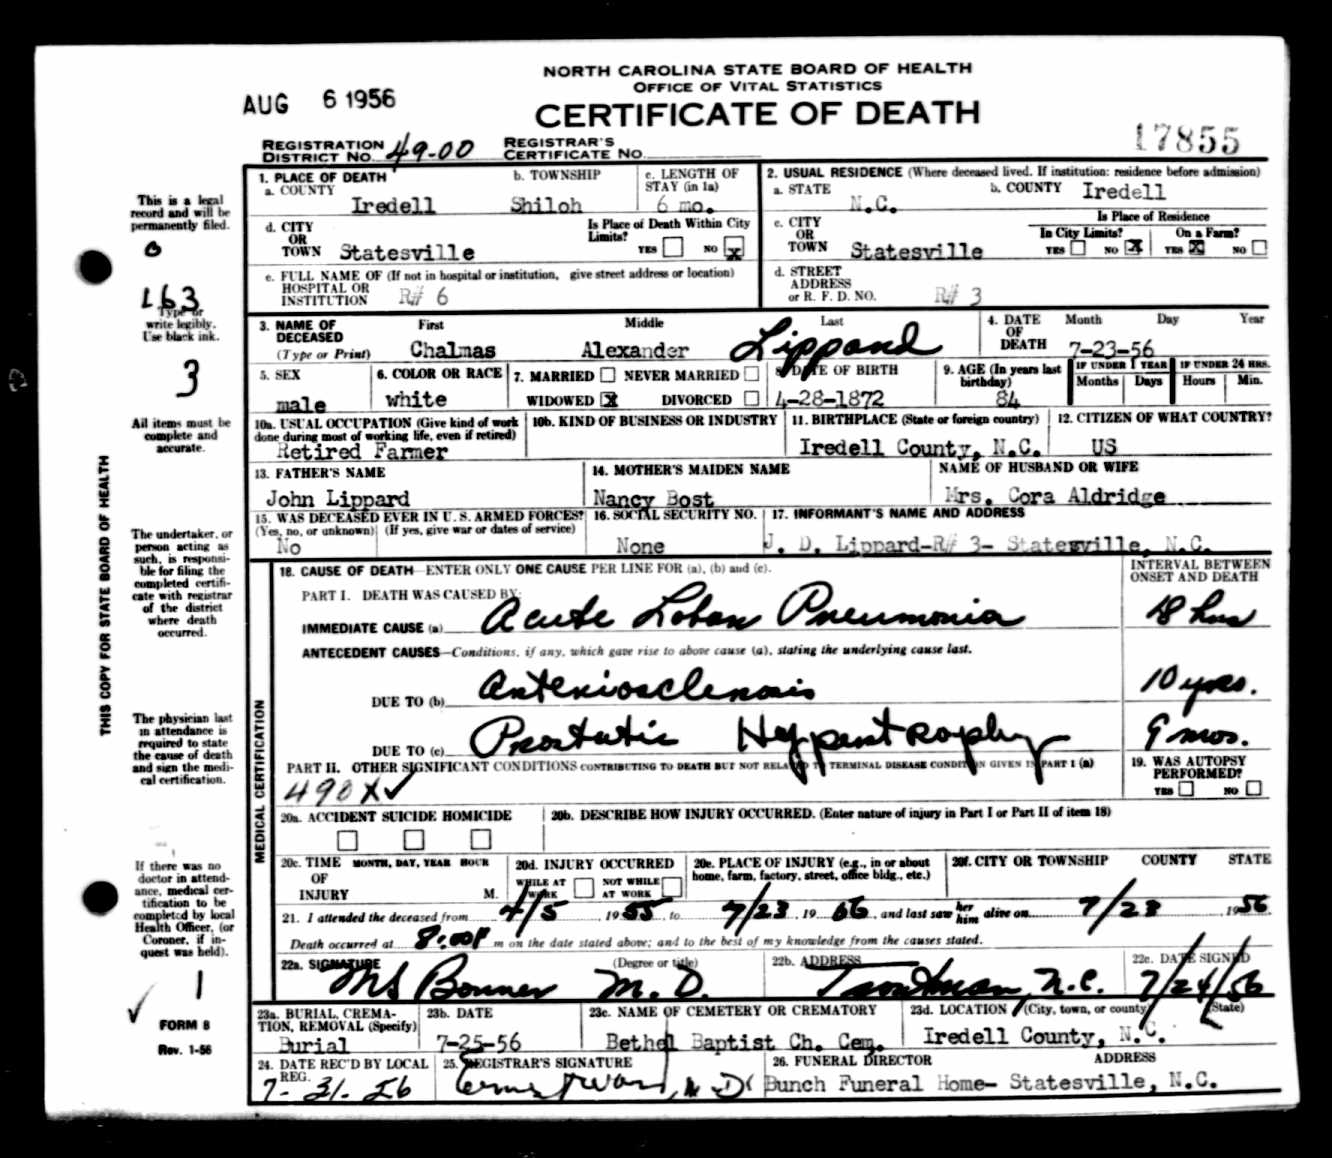 NORTH CAROLINA STATE BOARD OF HEALTH
OFFICE OF VITAL STATISTICS
AUG 6 1956
CERTIFICATE OF DEATH
17855
REGISTRATION DISTRICT NO. 49-00 REGISTRAR'S CERTIFICATE NO.
1. PLACE OF DEATH
a. COUNTY Iredell
b. TOWNSHIP Shiloh
c. LENGTH OF STAY (in 1a) 6 mo.
2. USUAL RESIDENCE (Where deceased lived. If institution: residence before admission)
a. STATE N.C.
b. COUNTY Iredell
d. CITY OR TOWN Statesville
Is Place of Death Within City Limits? YES NO x
c. CITY OR TOWN Statesville
Is Place of Residence
In City Limits? YES NO X
On a Farm? YES X NO
e. FULL NAME OF (If not in hospital or institution, give street address or location)
HOSPITAL OR INSTITUTION R# 6
d. STREET ADDRESS or R. F. D. NO. R# 3
3. NAME OF DECEASED (Type or Print)
First Middle Last
Chalmas Alexander Lippard
4. DATE OF DEATH Month Day Year
7-23-56
5. SEX male
6. COLOR OR RACE white
7. MARRIED NEVER MARRIED
WIDOWED X DIVORCED
8. DATE OF BIRTH 4-28-1872
9. AGE (In years last birthday) 84
IF UNDER 1 YEAR Months Days
IF UNDER 24 HRS. Hours Min.
10a. USUAL OCCUPATION (Give kind of work done during most of working life, even if retired)
Retired Farmer
10b. KIND OF BUSINESS OR INDUSTRY
11. BIRTHPLACE (State or foreign country)
Iredell County, N.C.
12. CITIZEN OF WHAT COUNTRY?
US
13. FATHER'S NAME
John Lippard
14. MOTHER'S MAIDEN NAME
Nancy Bost
NAME OF HUSBAND OR WIFE
Mrs. Cora Aldridge
15. WAS DECEASED EVER IN U. S. ARMED FORCES?
(Yes, no, or unknown) (If yes, give war or dates of service)
No
16. SOCIAL SECURITY NO.
None
17. INFORMANT'S NAME AND ADDRESS
J. D. Lippard-R# 3- Statesville, N.C.
MEDICAL CERTIFICATION
18. CAUSE OF DEATH—ENTER ONLY ONE CAUSE PER LINE FOR (a), (b) and (c).
INTERVAL BETWEEN ONSET AND DEATH
PART I. DEATH WAS CAUSED BY:
IMMEDIATE CAUSE (a) Acute Lobar Pneumonia 18 hrs
ANTECEDENT CAUSES—Conditions, if any, which gave rise to above cause (a), stating the underlying cause last.
DUE TO (b) Arteriosclerosis 10 yrs.
DUE TO (c) Prostatic Hypertrophy 9 mos.
PART II. OTHER SIGNIFICANT CONDITIONS CONTRIBUTING TO DEATH BUT NOT RELATED TO TERMINAL DISEASE CONDITION GIVEN IN PART I (a)
490X✓
19. WAS AUTOPSY PERFORMED? YES NO
20a. ACCIDENT SUICIDE HOMICIDE
20b. DESCRIBE HOW INJURY OCCURRED. (Enter nature of injury in Part I or Part II of item 18)
20c. TIME OF INJURY MONTH, DAY, YEAR HOUR M.
20d. INJURY OCCURRED WHILE AT WORK NOT WHILE AT WORK
20e. PLACE OF INJURY (e.g., in or about home, farm, factory, street, office bldg., etc.)
20f. CITY OR TOWNSHIP COUNTY STATE
21. I attended the deceased from 4/5 1955, to 7/23, 1956, and last saw her him alive on 7/23 1956
Death occurred at 8:00P m on the date stated above; and to the best of my knowledge from the causes stated.
22a. SIGNATURE (Degree or title)
MS Bonner M.D.
22b. ADDRESS
Troutman, N.C.
22c. DATE SIGNED
7/24/56
23a. BURIAL, CREMATION, REMOVAL (Specify)
Burial
23b. DATE
7-25-56
23c. NAME OF CEMETERY OR CREMATORY
Bethel Baptist Ch. Cem.
23d. LOCATION (City, town, or county) (State)
Iredell County, N.C.
24. DATE REC'D BY LOCAL REG.
7-31-56
25. REGISTRAR'S SIGNATURE
26. FUNERAL DIRECTOR ADDRESS
Bunch Funeral Home- Statesville, N.C.
THIS COPY FOR STATE BOARD OF HEALTH
This is a legal
record and will be
permanently filed.
L63
Type or
write legibly.
Use black ink.
3
All items must be
complete and
accurate.
The undertaker, or
person acting as
such, is responsi-
ble for filing the
completed certifi-
cate with registrar
of the district
where death
occurred.
The physician last
in attendance is
required to state
the cause of death
and sign the medi-
cal certification.
If there was no
doctor in attend-
ance, medical cer-
tification to be
completed by local
Health Officer, (or
Coroner, if in-
quest was held).
1
✓
FORM 8
Rev. 1-56